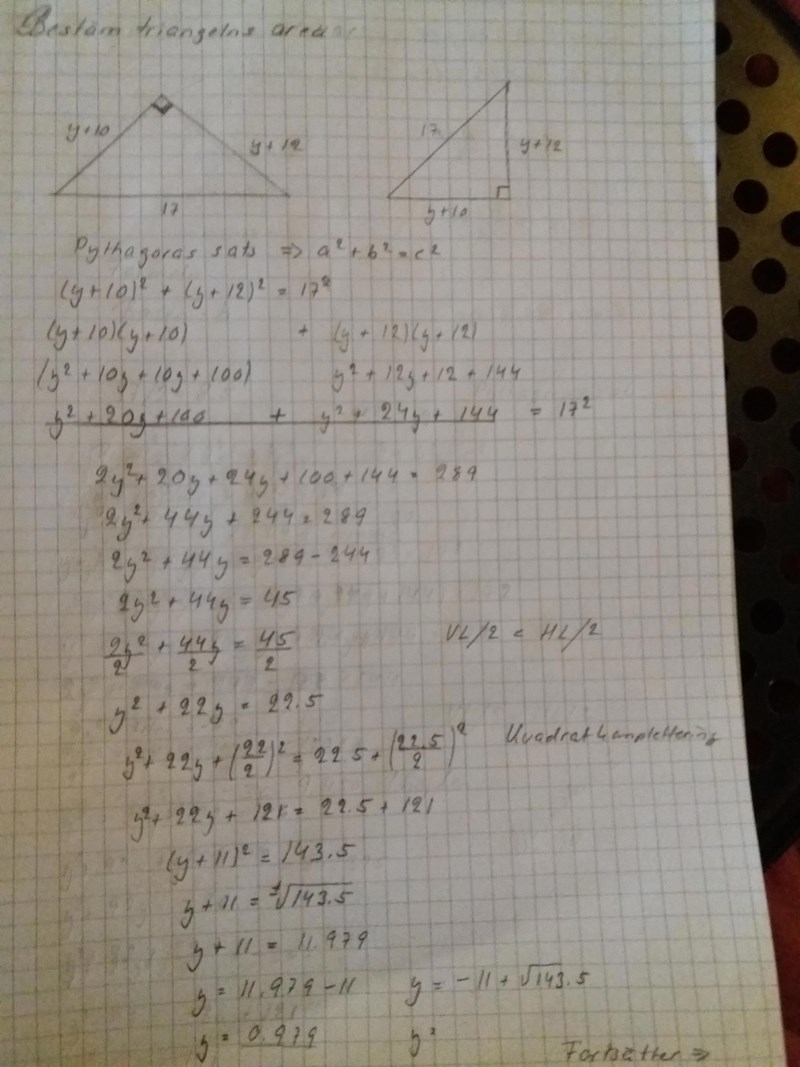 Bestäm triangelns area
y+10
y+12
17
17
y+12
y+10
Pythagoras sats => a² + b² = c²
(y+10)² + (y+12)² = 17²
(y+10)(y+10) + (y+12)(y+12)
(y² + 10y + 10y + 100) y² + 12y + 12 + 144
y² + 20y + 100 + y² + 24y + 144 = 17²
2y² + 20y + 24y + 100 + 144 = 289
2y² + 44y + 244 = 289
2y² + 44y = 289 - 244
2y² + 44y = 45
2y²/2 + 44y/2 = 45/2 VL/2 = HL/2
y² + 22y = 22.5
y² + 22y + (22/2)² = 22.5 + (22.5/2)² Kvadratkomplettering
y² + 22y + 121 = 22.5 + 121
(y+11)² = 143.5
y + 11 = ±√143.5
y + 11 = 11.979
y = 11.979 - 11 y = -11 + √143.5
y = 0.979 y =
Fortsätter =>